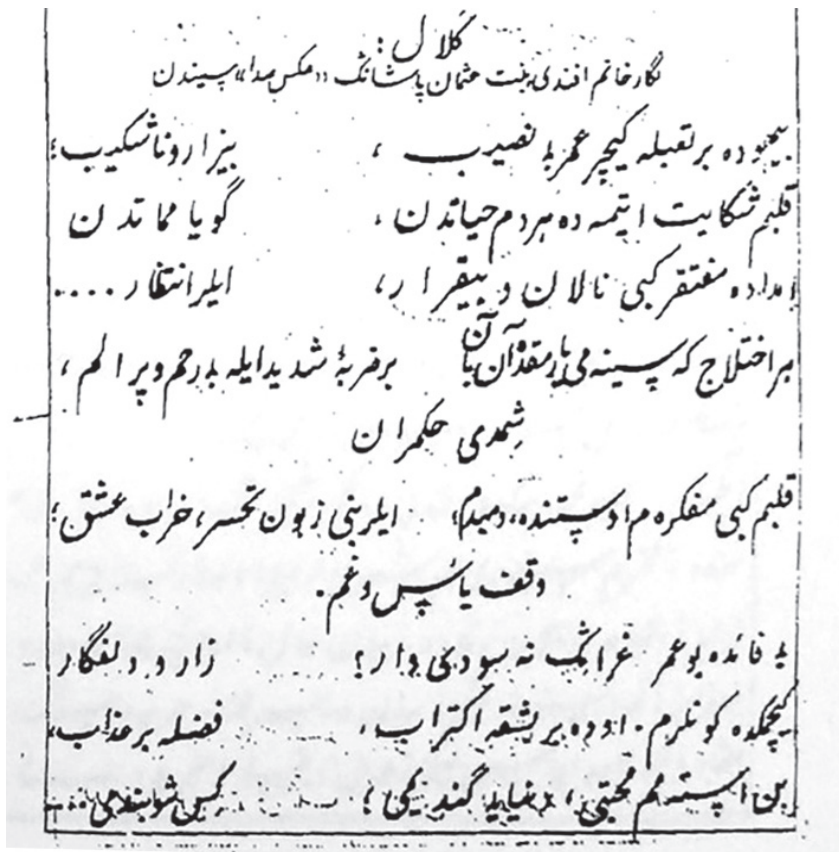 كلال :
نگار خانم افندی بنت عثمان پاشانك «عكس صدا» سیندن
بیهوده بر تعبله كیچر عمر بی نصیب ، بیزار و ناشكیب ؛
قلبم شكایت ایتمه ده هر دم حیاتدن ، گویا مماتدن
امداده مفتقر كبی نالان و بیقرار ، ایلر انتظار ....
هر اختلاج كه سینه می یارمقده آن بآن بر ضربۀ شدید ایله بی رحم و پر الم ،
شمدی حكمران
قلبم كبی مفكره م ایلر بنی زبون تحسر ، خراب عشق ؛
وقف یأس و غم .
بی فائده بو عمر نه سودی وار ؟ زار و دلفگار
كیچمكده كونلرم . بر بشقه اكتراب ، فضله بر عذاب ،
بن ایسته مم محبتی ،